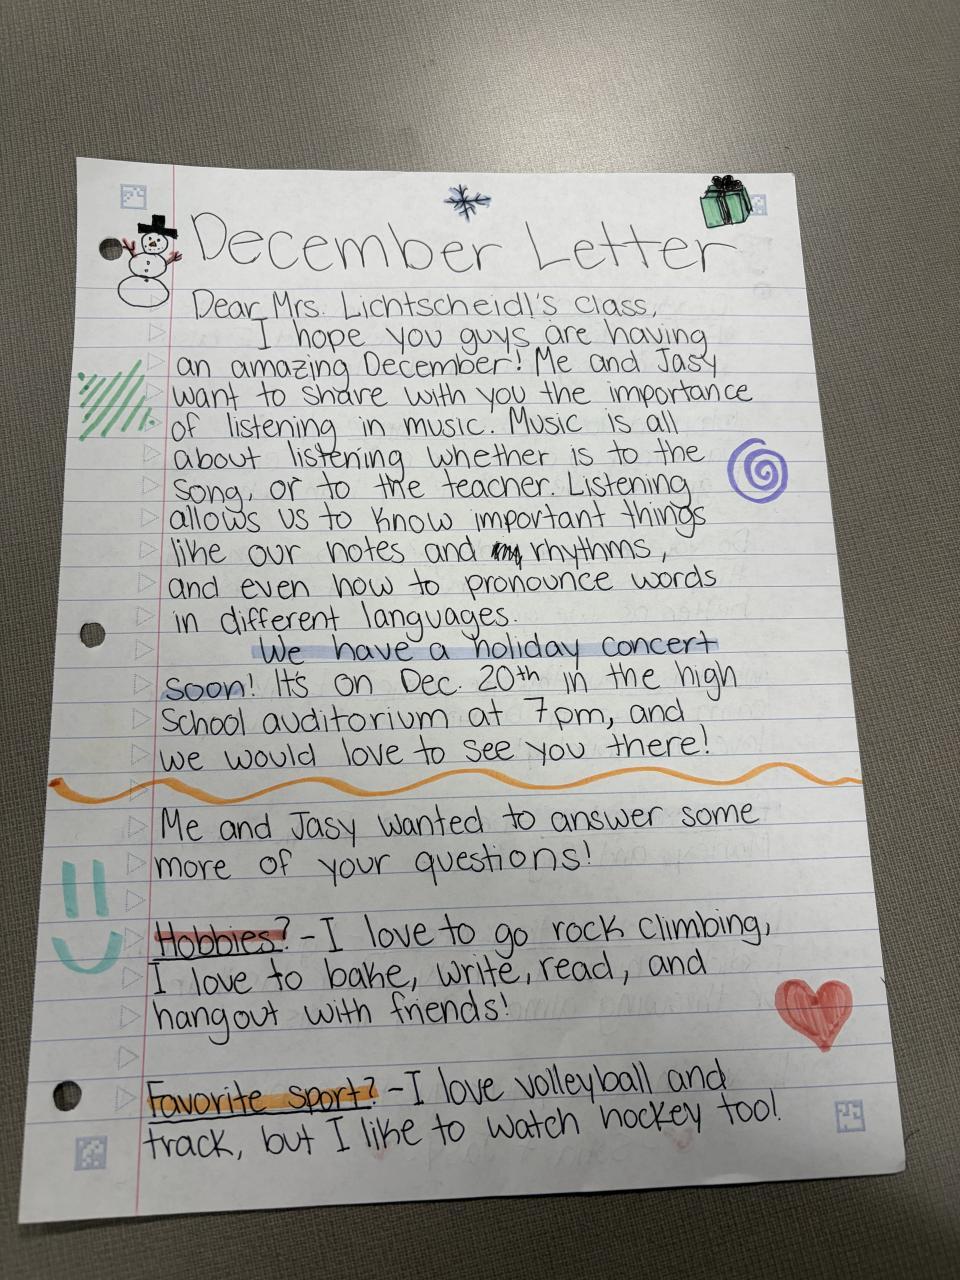 December Letter
Dear Mrs. Lichtscheidl's class,
I hope you guys are having
an amazing December! Me and Jasy
want to share with you the importance
of listening in music. Music is all
about listening whether is to the
song, or to the teacher. Listening
allows us to know important things
like our notes and rhythms,
and even how to pronounce words
in different languages.
We have a holiday concert
soon! It's on Dec. 20th in the high
school auditorium at 7pm, and
we would love to see you there!
Me and Jasy wanted to answer some
more of your questions!
Hobbies? - I love to go rock climbing,
I love to bake, write, read, and
hangout with friends!
Favorite sport? - I love volleyball and
track, but I like to watch hockey too!